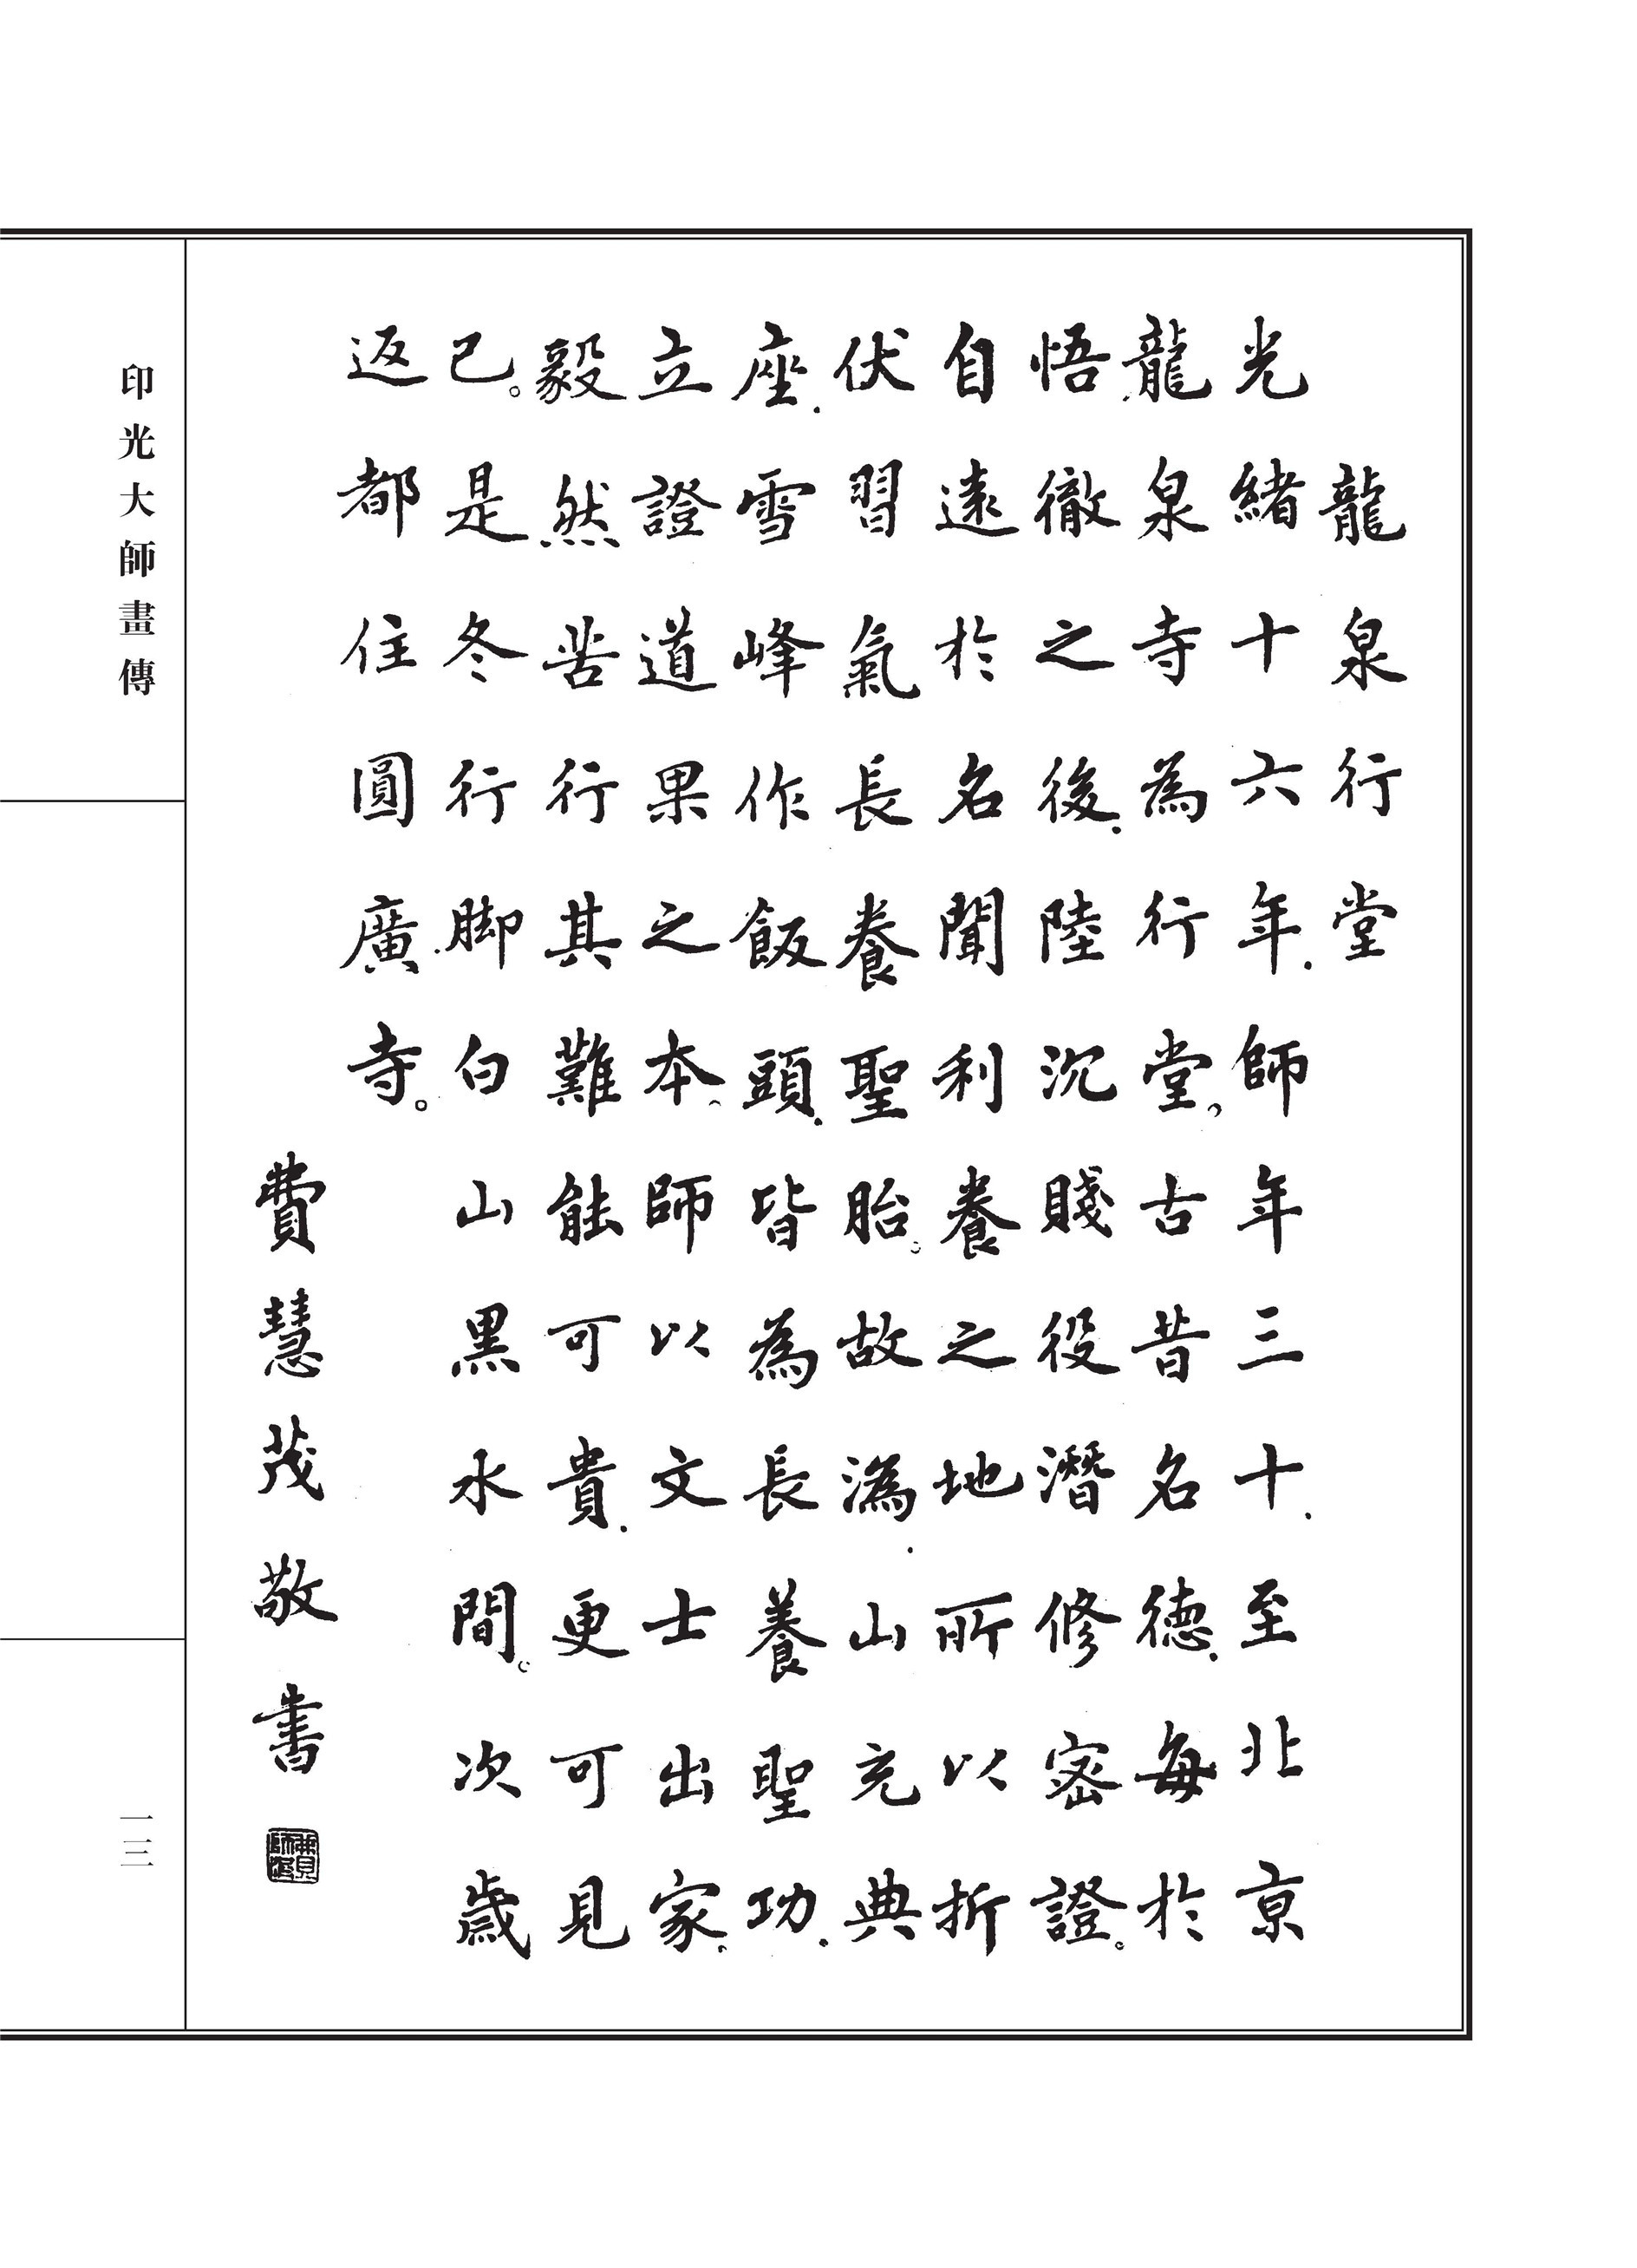 龍泉行堂
光緒十六年.師年三十.至北京
龍泉寺為行堂。古昔名德.每於
悟徹之後.陸沉賤役潛修密證。
自遠於名聞利養之地所以折
伏習氣長養聖胎。故溈.山充典
座.雪峰作飯頭.皆為長養聖功.
立證道果之本。師以文士出家.
毅然苦行其難能可貴.更可見
已。是冬行腳白山黑水間。次歲
返都住圓廣寺。
費慧茂敬書
印光大師畫傳
一三